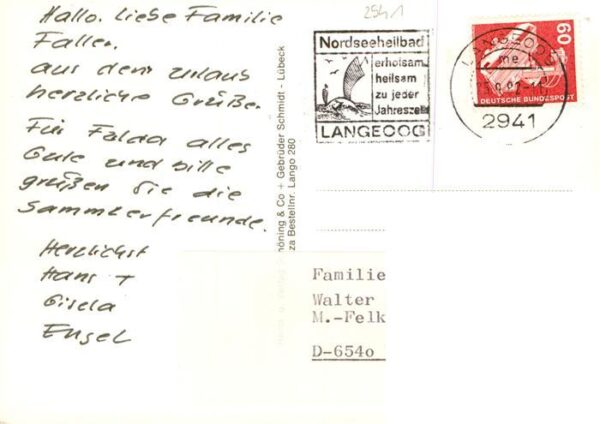 Hallo. Liebe Familie
Faller.
aus dem Urlaub
herzliche Grüße.
Für Falda alles
Gute und bitte
grüßen Sie die
Sammlerfreunde.
Herzlichst
Hans +
Gisela
Engel
höning & Co + Gebrüder Schmidt - Lübeck
za Bestellnr. Lango 280
2941
Nordseeheilbad
erholsam
heilsam
zu jeder
Jahreszeit
LANGEOOG
LANGEOOG
me
2941
60
DEUTSCHE BUNDESPOST
Familie
Walter
M.-Felk
D-654o